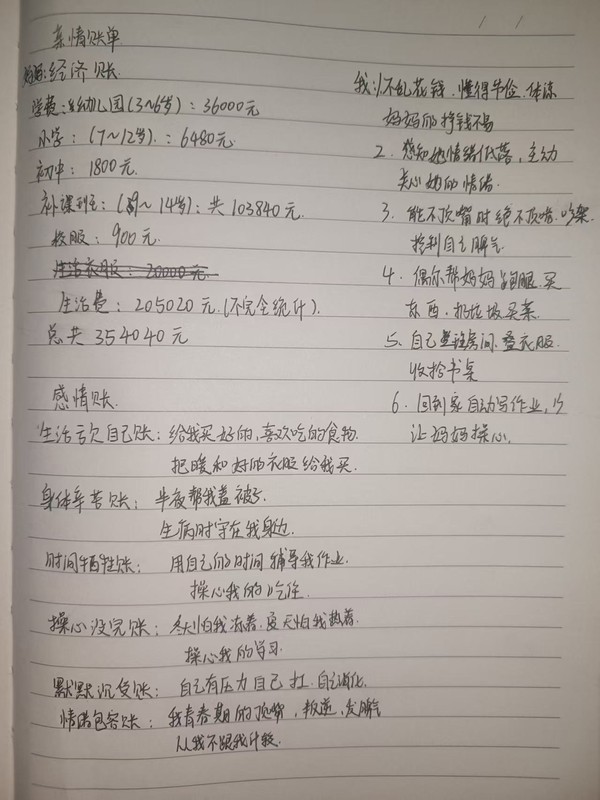 亲情账单
妈妈:经济账
学费:幼儿园(3~6岁):36000元
小学:(7~12岁):6480元
初中:1800元
补课班:(~14岁):共103840元
校服:900元
生活衣服:20000元
生活费:205020元.(不完全统计)
总共354040元
感情账
生活亏欠自己账:给我买好的,喜欢吃的食物
把暖和好的衣服给我买.
身体辛苦账:半夜帮我盖被子
生病时守在我身边.
时间牺牲账:用自己的时间辅导我作业.
操心我的吃住
操心没完账:冬天怕我冻着.夏天怕我热着.
操心我的学习.
默默沉受账:自己有压力自己扛.自己消化.
情绪包容账:我青春期的顶嘴,叛逆,发脾气
从我不跟我计较.
我:1.不乱花钱.懂得节俭.体谅
妈妈的挣钱不易
2.感知她情绪低落,主动
关心她的情绪.
3.能不顶嘴时绝不顶嘴.吵架.
控制自己脾气
4.偶尔帮妈妈.买
东西.扔垃圾买菜.
5.自己整理房间.叠衣服
收拾书桌
6.回到家自动写作业,少
让妈妈操心.